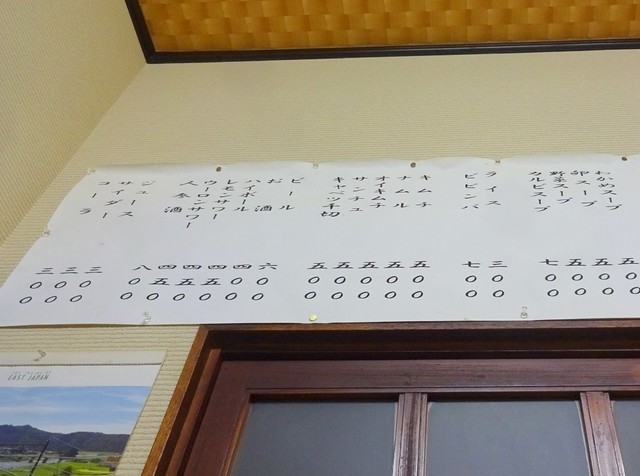 わかめスープ 五〇〇
卵スープ 五〇〇
野菜スープ 五〇〇
カルビスープ 七〇〇
ライス 三〇〇
ビビンバ 七〇〇
キムチ 五〇〇
ナムル 五〇〇
オイキムチ 五〇〇
サンチュ 五〇〇
キャベツ千切 五〇〇
ビール 六〇〇
お酒 四〇〇
ハイボール 四五〇
レモンサワー 四五〇
ウーロンサワー 四五〇
人参酒 八〇〇
ジュース 三〇〇
サイダー 三〇〇
コーラ 三〇〇
EAST JAPAN